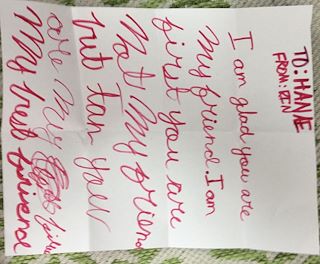 TO: HANAE
FROM: RIN
I am glad you are
My friend. I am
first you are
Not My frien
but
you
are My
My best friend